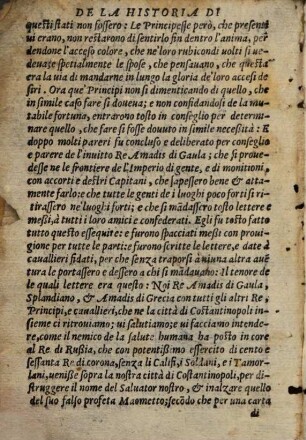 DE LA HISTORIA DI
questi stati non fossero: Le Principesse però, che presenti
vi erano, non restarono di sentirlo fin dentro l'anima, per
dendone l'acceso colore, che ne' loro rubicondi volti si ue
deua; e spetialmente le spose, che pensauano, che questa
era la uia di mandarne in lungo la gloria de' loro accesi de
siri. Ora que' Principi non si dimenticando di quello, che
in simile caso fare si doueua; e non confidandosi de la mu
tabile fortuna, entrarono tosto in conseglio per determi
nare quello, che fare si fosse douuto in simile necessità: E
doppo molti pareri fu concluso e deliberato per conseglio
e parere de l'inuitto Re Amadis di Gaula; che si proue
desse ne le frontiere de l'Imperio di gente, e di monitioni,
con accorti e destri Capitani, che sapessero bene & at
tamente farlo: e che tutte le genti de i luoghi poco forti si ri
tirassero ne' luoghi forti; e che si mãdassero tosto lettere e
messi, à tutti i loro amici e confederati. Egli fu tosto fatto
tutto questo essequire: e furono spacciati messi con proui-
gione per tutte le parti: e furono scritte le lettere, e date à
cauallieri fidati, per che senza traporsi à niuna altra auē
tura le portassero e dessero a chi si mãdauano: Il tenore de
le quali lettere era questo: Noi Re Amadis di Gaula,
Splandiano, & Amadis di Grecia con tutti gli altri Re,
Principi, e cauallieri, che ne la città di Costantinopoli in-
sieme ci ritrouiamo; ui salutiamo; e ui facciamo intende-
re, come il nemico de la salute humana ha posto in core
al Re di Rusia, che con potentissimo essercito di cento e
sessanta Re di corona, senza li Califi, i Soldani, e i Tamor-
lani, uenisse sopra la nostra città di Costantinopoli, per di-
struggere il nome del Saluator nostro, & inalzare quello
del suo falso profeta Maometto; secōdo che per una carta
di